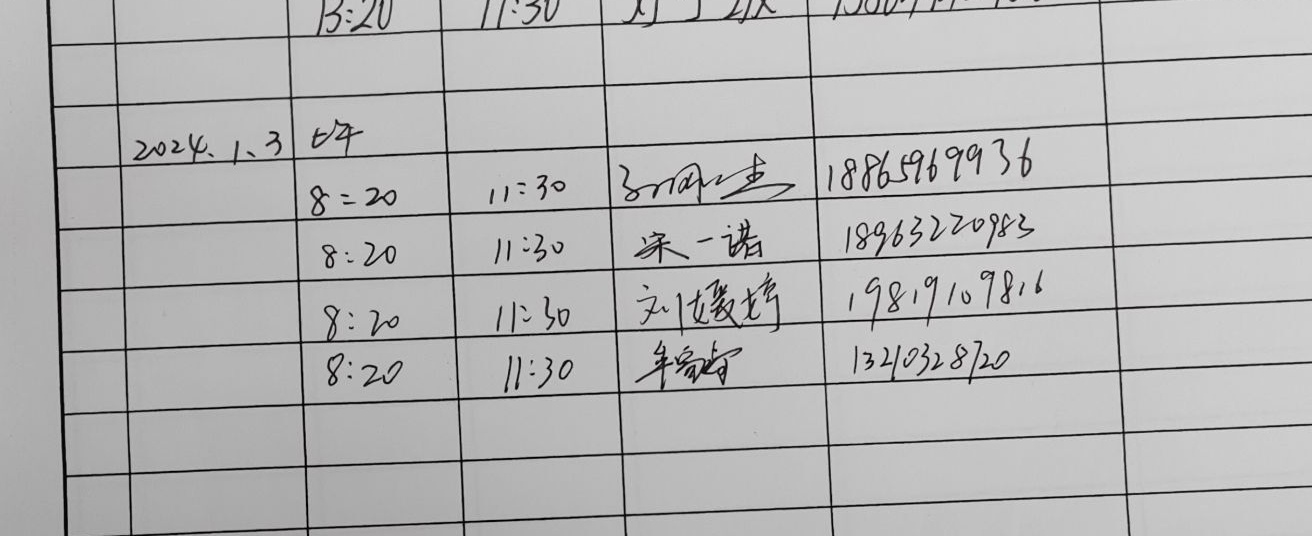 13:20 11:30
2024.1.3 上午
8:20 11:30 18865969936
8:20 11:30 宋一诺 18963220983
8:20 11:30 刘媛婷 19819109816
8:20 11:30 牟 13210328720